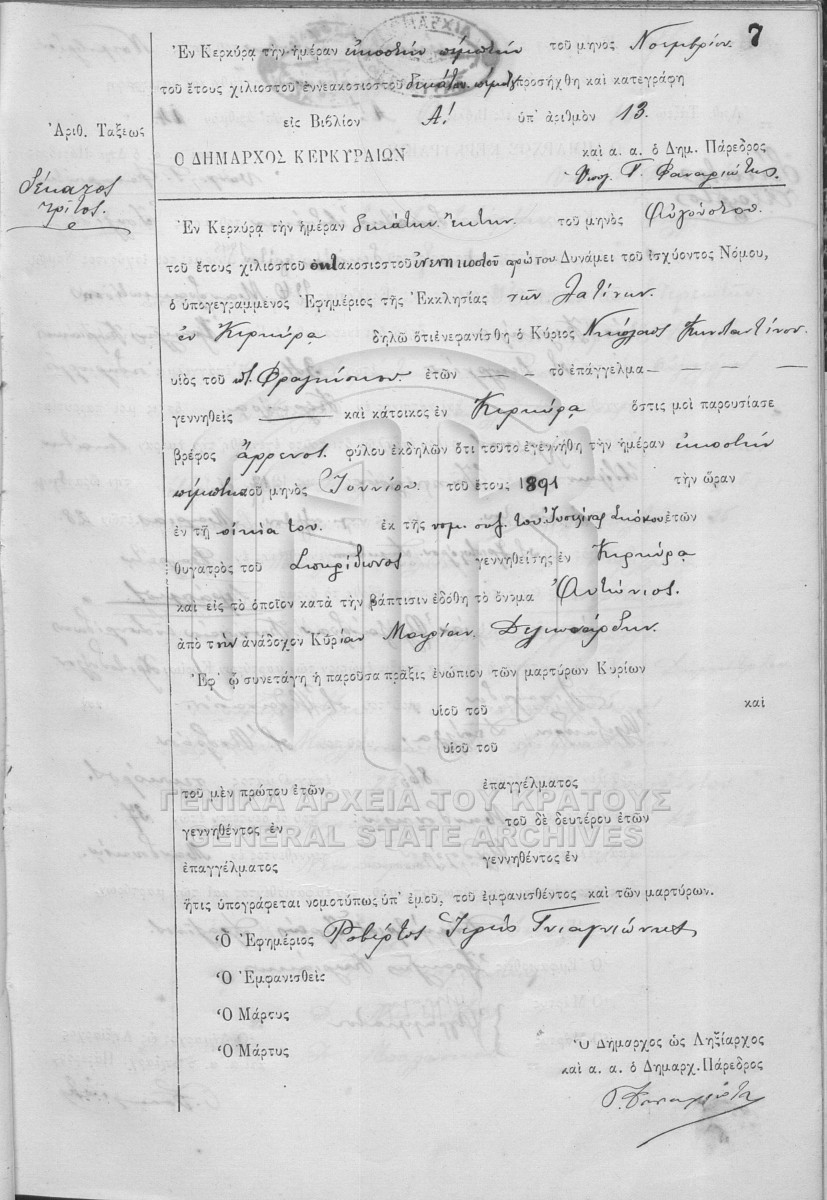 7
Ἐν Κερκύρᾳ τὴν ἡμέραν εἰκοστὴν πέμπτην τοῦ μηνὸς Νοεμβρίου.
τοῦ ἔτους χιλιοστοῦ ἐννεακοσιοστοῦ δεκάτου πέμπτου προσήχθη καὶ κατεγράφη
εἰς Βιβλίον Α! ὑπ' ἀριθμὸν 13.
Ἀριθ. Τάξεως
Ο ΔΗΜΑΡΧΟΣ ΚΕΡΚΥΡΑΙΩΝ καὶ α. α. ὁ Δημ. Πάρεδρος
Υπογ. Γ. Φαναριώτης
Δέκατος
τρίτος.
Ἐν Κερκύρᾳ τὴν ἡμέραν δεκάτην ἕκτην. τοῦ μηνὸς Αὐγούστου.
τοῦ ἔτους χιλιοστοῦ ὀκτακοσιοστοῦ ἐνενηκοστοῦ πρώτου Δυνάμει τοῦ ἰσχύοντος Νόμου,
ὁ ὑπογεγραμμένος Ἐφημέριος τῆς Ἐκκλησίας τῶν Λατίνων.
ἐν Κερκύρᾳ δηλῶ ὅτι ἐνεφανίσθη ὁ Κύριος Νικόλαος Κωνσταντίνου.
υἱὸς τοῦ π. Φραγκίσκου. ἐτῶν — — — τὸ ἐπάγγελμα — — — —
γεννηθεὶς —— καὶ κάτοικος ἐν Κερκύρᾳ ὅστις μοὶ παρουσίασε
βρέφος ἄρρενος. φύλου ἐκδηλῶν ὅτι τοῦτο ἐγεννήθη τὴν ἡμέραν εἰκοστὴν
πέμπτην τοῦ μηνὸς Ἰουνίου. τοῦ ἔτους 1891 τὴν ὥραν
ἐν τῇ οἰκίᾳ του. ἐκ τῆς νομ. συζ. του ἐτῶν
θυγατρὸς τοῦ Σπυρίδωνος γεννηθείσης ἐν Κερκύρᾳ
καὶ εἰς τὸ ὁποῖον κατὰ τὴν βάπτισιν ἐδόθη τὸ ὄνομα Ἀντώνιος.
ἀπὸ τὴν ἀνάδοχον Κυρίαν Μαρίαν
Ἐφ' ᾧ συνετάγη ἡ παροῦσα πρᾶξις ἐνώπιον τῶν μαρτύρων Κυρίων
υἱοῦ τοῦ καὶ
υἱοῦ τοῦ
τοῦ μὲν πρώτου ἐτῶν ἐπαγγέλματος
ΓΕΝΙΚΑ ΑΡΧΕΙΑ ΤΟΥ ΚΡΑΤΟΥΣ
γεννηθέντος ἐν τοῦ δὲ δευτέρου ἐτῶν
GENERAL STATE ARCHIVES
ἐπαγγέλματος γεννηθέντος ἐν
ἥτις ὑπογράφεται νομοτύπως ὑπ' ἐμοῦ, τοῦ ἐμφανισθέντος καὶ τῶν μαρτύρων.
Ὁ Ἐφημέριος Ροβέρτος Ἱερεὺς
Ὁ Ἐμφανισθεὶς
Ὁ Μάρτυς
Ὁ Μάρτυς
Ὁ Δήμαρχος ὡς Ληξίαρχος
καὶ α. α. ὁ Δημαρχ. Πάρεδρος
Γ. Φαναριώτης